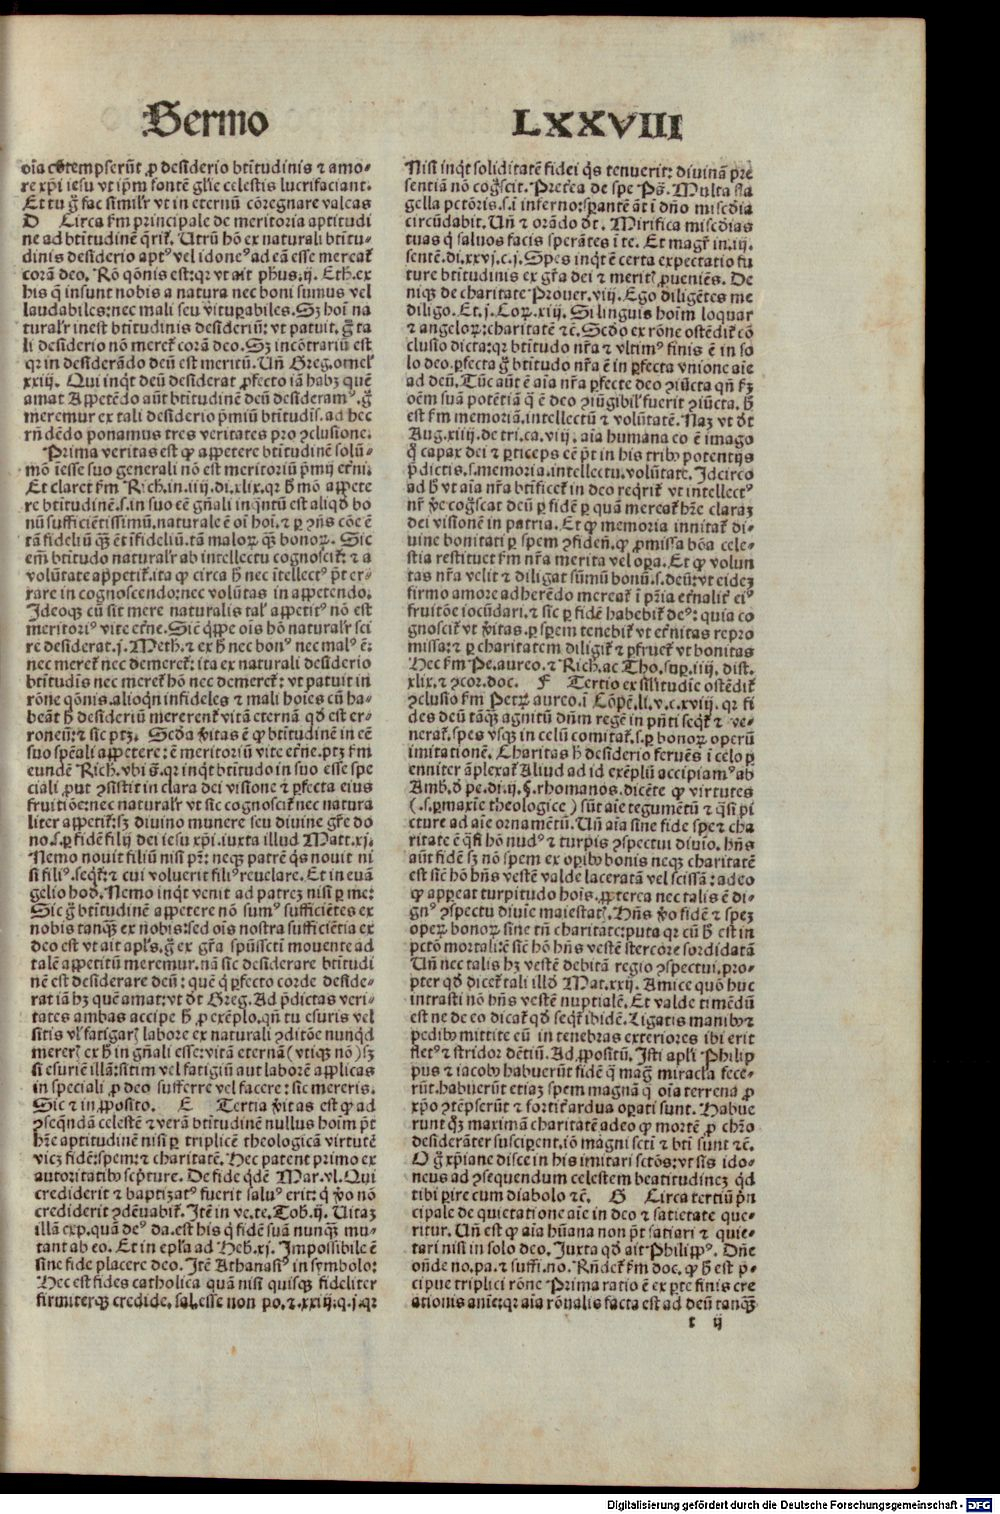 Sermo LXXVIII
oīa cōtempserūt ꝓ desiderio btītudinis ⁊ amo-
re xp̄i iesu vt ip̄m fontē glīe celestis lucrifaciant.
Et tu ḡ fac simil'r vt in eternū cōregnare valeas
D Circa s̄m principale de meritoria aptitudi
ne ad btītudinē q̄rit̄. Utrū hō ex naturali btītu-
dinis desiderio aptꝰ vel idoneꝰ ad eā esse mereat̄
corā deo. Rō qōnis est: qr vt ait phūs .ij. Eth. ex
his q̄ insunt nobis a natura nec boni sumus vel
laudabiles: nec mali seu vituꝑabiles. Sꝫ hoī na
tural'r inest btītudinis desideriū: vt patuit. ḡ ta
li desiderio nō meret̄ corā deo. Sꝫ incōtrariū est
qr in desiderādo deū est meritū. Uñ Greg. omel'
xxij. Qui inq̄t deū desiderat ꝑfecto iā habꝫ quē
amat Appetēdo aūt btītudinē deū desideramꝰ. ḡ
meremur ex tali desiderio p̄miū btītudīs. ad hec
rn̄dēdo ponamus tres veritates pro ↄclusione.
Prima veritas est ꝙ appetere btītudinē solū-
mō īesse suo generali nō est meritoriū p̄mij et̄ni.
Et claret s̄m Rich. in .iiij. di. xlix. qr h̄ mō appete
re btītudinē .s. in suo eē gn̄ali inq̄ntū est aliqđ bo
nū sufficiētissimū. naturale ē oī hoī. ⁊ ꝑ ↄn̄s cōe ē
tā fideliū qꝫ ēt īfideliū. tā malorꝫ qꝫ bonorꝫ. Sic
em̄ btītudo natural'r ab intellectu cognoscit̄: ⁊ a
volūtate appetit̄. ita ꝙ circa h̄ nec ītellectꝰ p̄t er-
rare in cognoscendo: nec volūtas in appetendo.
Ideoqꝫ cū sit mere naturalis tal' appetitꝰ nō est
meritoriꝰ vite et̄ne. Sic̄ q̄ppe oīs hō natural'r sci
re desiderat .j. Meth. ⁊ ex h̄ nec bonꝰ nec malꝰ ē:
nec meret̄ nec demeret̄: ita ex naturali desiderio
btītudīs nec meret̄ hō nec demeret̄: vt patuit in
rōne qōnis. alioqn infideles ⁊ mali hoīes cū ha-
beāt h̄ desideriū mererent̄ vitā eternā qđ est er-
roneū: ⁊ sic ptꝫ. Scđa v̄itas ē ꝙ btītudinē in eē
suo spēali appetere: ē meritoriū vite et̄ne. ptꝫ s̄m
eundē Rich. vbi s̄. qr inq̄t btītudo in suo esse spe
ciali ꝓut ↄsistit in clara dei visione ⁊ ꝑfecta eius
fruitiōe: nec natural'r vt sic cognoscit̄ nec natura
liter appetit̄: sꝫ diuino munere seu diuine gr̄e do
no .s. ꝑ fidē filij dei iesu xp̄i. iuxta illud Matt. xj.
Nemo nouit filiū nisi pr̄: neqꝫ patrē q̄s nouit ni
si filiꝰ. seqt̄: ⁊ cui voluerit filiꝰ reuelare. Et in euā
gelio hođ. Nemo inq̄t venit ad patreꝫ nisi ꝑ me:
Sic ḡ btītudinē appetere nō sumꝰ sufficiētes ex
nobis tanqꝫ ex nobis: sed oīs nostra sufficiētia ex
deo est vt ait apl's. ḡ ex gr̄a spūsscti mouente ad
talē appetitū meremur. nā sic desiderare btītudi
nē est desiderare deū: quē q̄ ꝑfecto corde deside-
rat iā hꝫ quē amat: vt đt Greg. Ad p̄dictas veri-
tates ambas accipe h̄ ꝓ exēplo. qn̄ tu esuris vel
sitis vl' fatigarꝭ labore ex naturali ↄditōe nunqđ
mererꝭ ex h̄ in gn̄ali esse: vitā eternā (vtiqꝫ nō) sꝫ
si esuriē illā: sitim vel fatigiū aut laborē applicas
in speciali ꝓ deo sufferre vel facere: sic mereris.
Sic ⁊ in ꝓposito. E Tertia v̄itas est ꝙ ad
ↄseqndā celestē ⁊ verā btītudinē nullus hoīm p̄t
hr̄e aptitudinē nisi ꝑ triplicē theologicā virtutē
vicꝫ fidē: spem: ⁊ charitatē. Hec patent primo ex
autoritatibꝫ sc̄pture. De fide qdē Mar. vl. Qui
crediderit ⁊ baptizatꝰ fuerit saluꝰ erit: q̄ v̄o nō
crediderit ↄdēnabit̄. Itē in ve. te. Tob. ij. Uitaꝫ
illā exp. quā deꝰ da. est his q̄ fidē suā nunqꝫ mu-
tant ab eo. Et in epl'a ad Heb. xj. Impossibile ē
sine fide placere deo. Itē Athanasiꝰ in symbolo:
Hec est fides catholica quā nisi quisqꝫ fideliter
firmiterqꝫ credide. sal. esse non po. ⁊ .xxiij. q. j. qr
Nisi inq̄t soliditatē fidei q̄s tenuerit: diuinā pre
sentiā nō coḡscit. Preteā de spe Pꝭ. Multa fla
gella pctōris .s. ī inferno: sꝑantē āt ī dn̄o misc̄dia
circūdabit. Uñ ⁊ orādo đt. Mirifica misc̄dias
tuas q̄ saluos facis sperātes ī te. Et magr̄ in .iij.
sentē. di. xxvj. c. j. Spes inq̄t ē certa expectatio fu
ture btītudinis ex gr̄a dei ⁊ meritꝭ ꝓueniēs. De
niqꝫ de charitate Prouer. viij. Ego diligētes me
diligo. Et .j. Corꝫ. xiij. Si linguis hoīm loquar
⁊ angelorꝫ: charitatē ⁊c̄. Scđo ex rōne ostēdit̄ cō
clusio dicta: qr btītudo nr̄a ⁊ vltimꝰ finis ē in so
lo deo. ꝑfecta ḡ btītudo nr̄a ē in ꝑfecta vnione aīe
ad deū. Tūc aūt ē aīa nr̄a ꝑfecte deo ↄiūcta qn̄ s̄ꝫ
oēm suā potētiā q̄ ē deo ↄiūgibil' fuerit ↄiūcta. h̄
est s̄m memoriā. intellectū ⁊ volūtatē. Naꝫ vt đt
Aug. xiiij. de tri. ca. viij. aīa humana eo ē imago
q̄ capax dei ⁊ ꝑticeps eē p̄t in his tribꝫ potentijs
p̄dictis .s. memoria. intellectu. volūtate. Idcirco
ad h̄ vt aīa nr̄a btīficet̄ in deo reqrit̄ vt intellectꝰ
nr̄ v̄e coḡscat deū ꝑ fidē ꝑ quā mereat̄ hr̄e claraꝫ
dei visionē in patria. Et ꝙ memoria innitat̄ di-
uine bonitati ꝑ spem ↄfideñ. ꝙ ꝓmissa bōa cele-
stia restituet s̄m nr̄a merita vel oꝑa. Et ꝙ volun
tas nr̄a velit ⁊ diligat sūmū bonū .s. deū: vt eideꝫ
firmo amore adherēdo mereat̄ ī pr̄ia et̄nalit̄ eiꝰ
fruitōe iocūdari. ⁊ sic ꝑ fidē habebit̄ deꝰ: quia co
gnoscit̄ vt v̄itas. ꝑ spem tenebit̄ vt et̄nitas repro
missa: ⁊ ꝑ charitatem diligit̄ ⁊ ꝑfruet̄ vt bonitas
Hec s̄m Pe. aureo. ⁊ Rich. ac Tho. suꝑ .iiij. dist.
xlix. ⁊ ↄcor. doc. F Tertio ex sil'itudīe ostēdit̄
ↄclusio s̄m Petrꝫ aureo. ī Cōpē. li. v. c. xviij. qr fi
des deū tāqꝫ agnitū dn̄m regē in pn̄ti seqt̄ ⁊ ve-
nerat̄. spes vsqꝫ in celū comitat̄ .s. ꝑ bonorꝫ operū
imitationē. Charitas h̄ desiderio feruēs ī celo ꝑ
enniter āplexat̄ Aliud ad id exēplū accipiamꝰ ab
Amb. đ pe. di. ij. §. rhomanos. dicēte ꝙ virtutes
(.s. ꝑmaxīe theologice) sūt aīe tegumētū ⁊ q̄si pi
cture ad aīe ornamētū. Uñ aīa sine fide spe ⁊ cha
ritate ē q̄si hō nudꝰ ⁊ turpis ↄspectui diuīo. hn̄s
aūt fidē sꝫ nō spem ex oꝑibꝫ bonis neqꝫ charitatē
est sic̄ hō hn̄s vestē valde laceratā vel scissā: adeo
ꝙ appareat turpitudo hoīs. ꝓpterea nec talis ē di-
gnꝰ ↄspectu diuīe maiestatꝭ. Hn̄s v̄o fidē ⁊ speꝫ
operꝫ bonorꝫ sine tn̄ charitate: puta qr cū h̄ est in
pctō mortali: ē sic̄ hō hn̄s vestē stercore sordidatā
Uñ nec talis hꝫ vestē debitā regio ↄspectui. pro-
pter qđ dicet̄ tali illđ Mat. xxij. Amice quō huc
intrasti nō hn̄s vestē nuptialē. Et valde timēdū
est ne de eo dicat̄ qđ seqt̄ ibidē. Ligatis manibꝫ ⁊
pedibꝫ mittite eū in tenebras exteriores ibi erit
fletꝰ ⁊ stridor dētiū. Ad ꝓpositū. Isti apl'i Philip
pus ⁊ iacobꝰ habuerūt fidē q̄ maḡ miracl'a fece-
rūt. habuerūt etiaꝫ spem magnā q̄ oīa terrena ꝓ
xp̄o ↄtēpserūt ⁊ fortit̄ ardua oꝑati sunt. Habue
runt qꝫ maximā charitatē adeo ꝙ mortē ꝓ ch̄ro
desiderāter susceperūt. iō magni sctī ⁊ btī sunt ⁊c̄.
O ḡ xp̄iane disce in his imitari sctōs: vt sis ido-
neus ad ↄsequendum celestem beatitudineꝫ qđ
tibi ꝑire cum diabolo ⁊c̄. G Circa tertiū p̄n
cipale de quietatione aīe in deo ⁊ satietate que-
ritur. Uñ est ꝙ aīa hūana non p̄t satiari ⁊ quie-
tari nisi in solo deo. Iuxta qđ ait Philippꝰ. Dn̄e
on̄de no. pa. ⁊ suffi. no. Rn̄det̄ s̄m doc. ꝙ h̄ est p̄-
cipue triplici rōne Prima ratio ē ex ꝑte finis cre
ationis anīe: qr aīa rōnalis facta est ad deū tanqꝫ
t ij
Digitalisierung gefördert durch die Deutsche Forschungsgemeinschaft - DFG